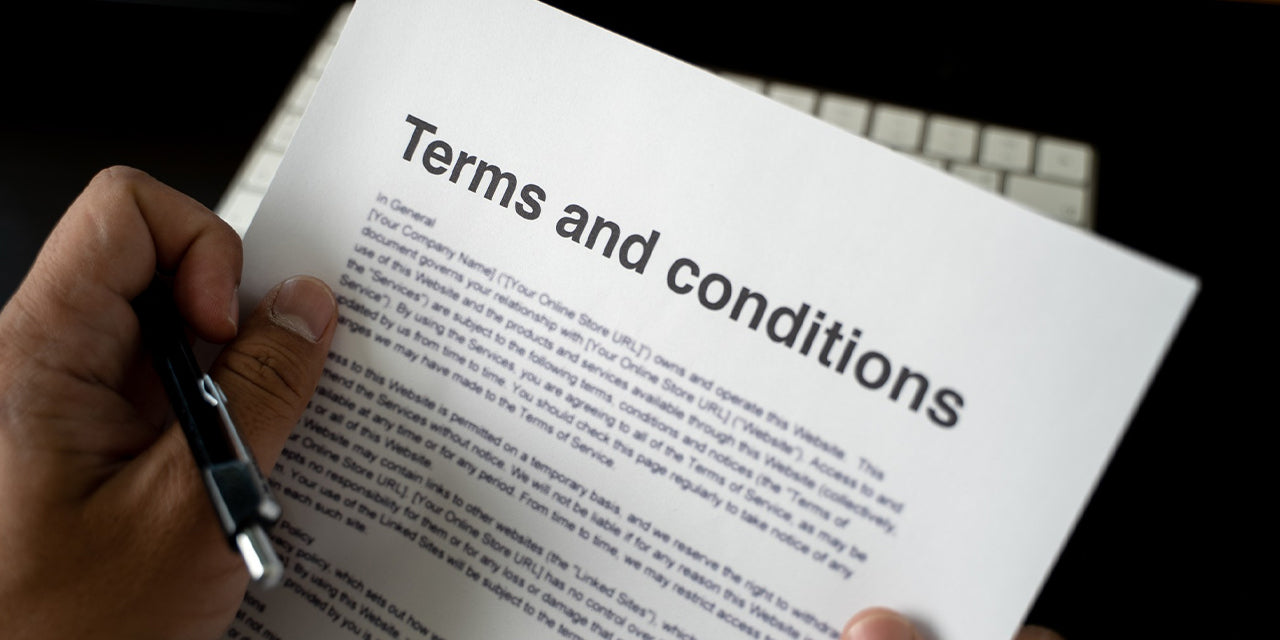 Terms and conditions
In General
[Your Company Name] ("[Your Online Store URL]") owns and operate this Website. This
document governs your relationship with [Your Online Store URL] ("Website"). Access to and
use of this Website and the products and services available through this Website (collectively,
the "Services") are subject to the following terms, conditions and notices (the "Terms of
Service"). By using the Services, you are agreeing to all of the Terms of Service, as may be
updated by us from time to time. You should check this page regularly to take notice of any
we may have made to the Terms of Service.
to this Website is permitted on a temporary basis, and we reserve the right to
the Services without notice. We will not be liable if for any reason this Website
at any time or for any period. From time to time, we may restrict access
or all of this Website.
Website may contain links to other websites (the "Linked Sites"),
Online Store URL]. [Your Online Store URL] has no control over
no responsibility for them or for any loss or damage that
Your use of the Linked Sites will be subject to the
each such site.
Policy
policy, which sets out how
By using this Website,
provided by you is